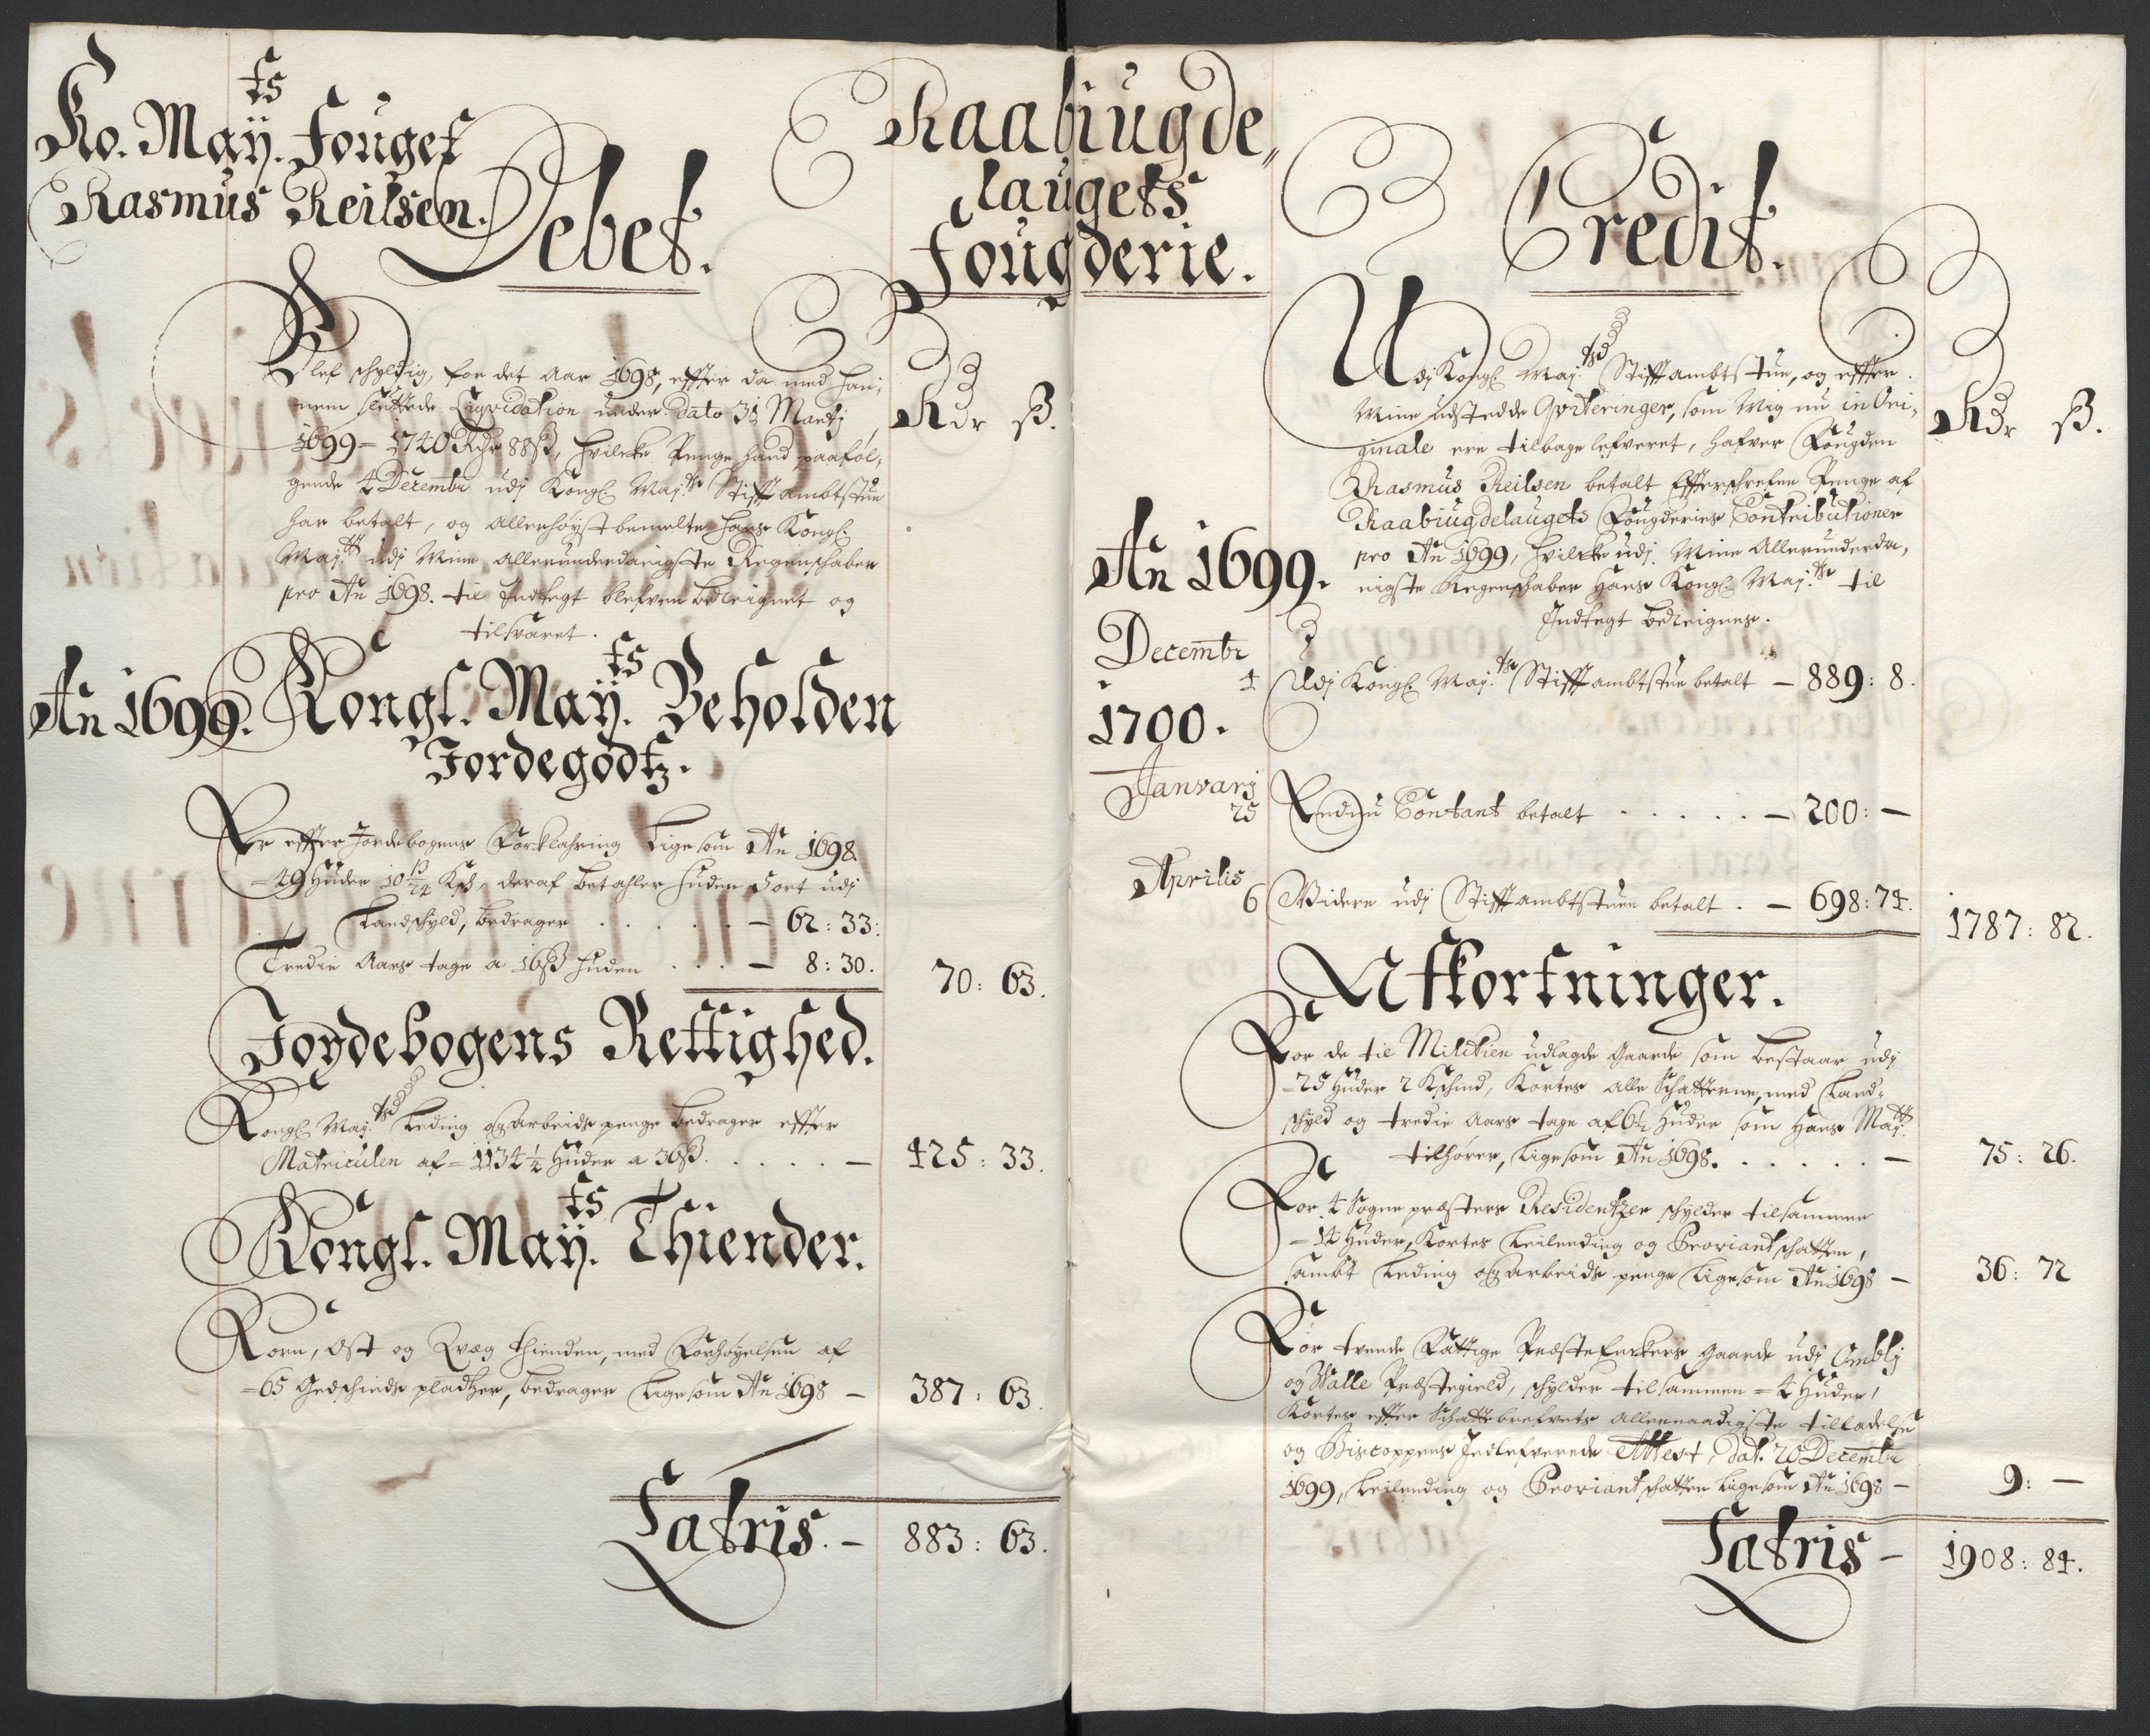 Ko. Maÿ.ts Fouget
Rasmus Reilsen.
Debet.
Raabiugde„
laugets
Fougderie.
Rdr ß.
Blef schyldig, for det Aar 1698, effter da med han„
nem sluttede Liqvidation under dato 31 Martj
1699 = 1740 Rdr 88 ß, hvilcke Penge hand paaføl„
gende 4 Decembr udj Kongl. Maj.ts Stifftambtstue
har betalt, og Allerhøyst bemelte Hans Kongl.
Maj.tt udj Mine allerunderdanigste Regenschaber
pro An 1698. til Indtegt blefven beleignet og
tilsvaret.
An 1699. Kongl. Maÿ.ts Beholden
Jordegodtz.
Er effter Jordebogens Forklahring Lige som An 1698
= 49 Huder 10 13/24 Ksk, deraf betahler huden 5 ort udj
Landschyld, bedrager . . . . . — 62: 33:
Tredie Aars tage a 16 ß huden . . . — 8: 30.
70: 63.
Joydebogens Rettighed.
Kongl. Maj.ts Leding og arbeids penge bedrager effter
Matriculen af = 1134 1/4 Huder a 36 ß. . . . . —
425: 33.
Kongl. Maÿ.ts Thiender.
Korn, Ost og Qvæg thienden, med Forhøyelsen af
= 65 Gedschinds pladtzer, bedrager Lige som An 1698 —
387: 63.
Latris. — 883: 63.
Credit.
Rdr ß.
Udj Kongl. Maj.ts Stifftambtstue, og effter
Mine udstedde Qviteringer, som Mig nu in Ori„
ginale ere tilbage lefveret, hafver Fougden
Rasmus Reilsen betalt Effterschrefne Penge af
Raabiugdelaugets Fougderies Contributioner
pro An 1699, hvilcke udj Mine Allerunderda„
nigste Regenschaber Hans Kongl. Maj.ts til
Indtegt beleignes.
An 1699.
Decembr
4 Udj Kongl. Maj.ts Stifftambtstue betalt — 889: 8.
1700.
Januarj
25 Endnu Contant betalt . . . . . — 200: —
Aprilis
6 Videre udj Stifftambtstuen betalt . — 698: 74.
1787: 82.
Afkortninger.
For de til Militien udlagde Gaarde som bestaar udj
= 25 Huder 2 Kschind, Kortes alle Schatterne, med Land„
schyld og tredie Aars tage af 6 1/2 Huder som Hans Maÿ.tt
tilhører, Lige som An 1698. . . . . . —
75: 26.
For 4 Sogne præsters Residentzer schylder tilsammen
= 14 Huder, Kortes Leilending og Proviantschatten,
sambt Leding og arbeids penge Lige som An 1698 —
36: 72
For tvende Fattige Præste Enckers Gaarde udj Omblj
og Valle Præstegield, schylder tilsammen = 4 Huder,
Kortes effter Schattebrefvets allernaadigste tilladelse
og Biscoppens Indlefverede Attest, dat. 20 Decembr
1699, Leilending og Proviantschatten Lige som An 1698 —
9: —
Latris — 1908: 84.